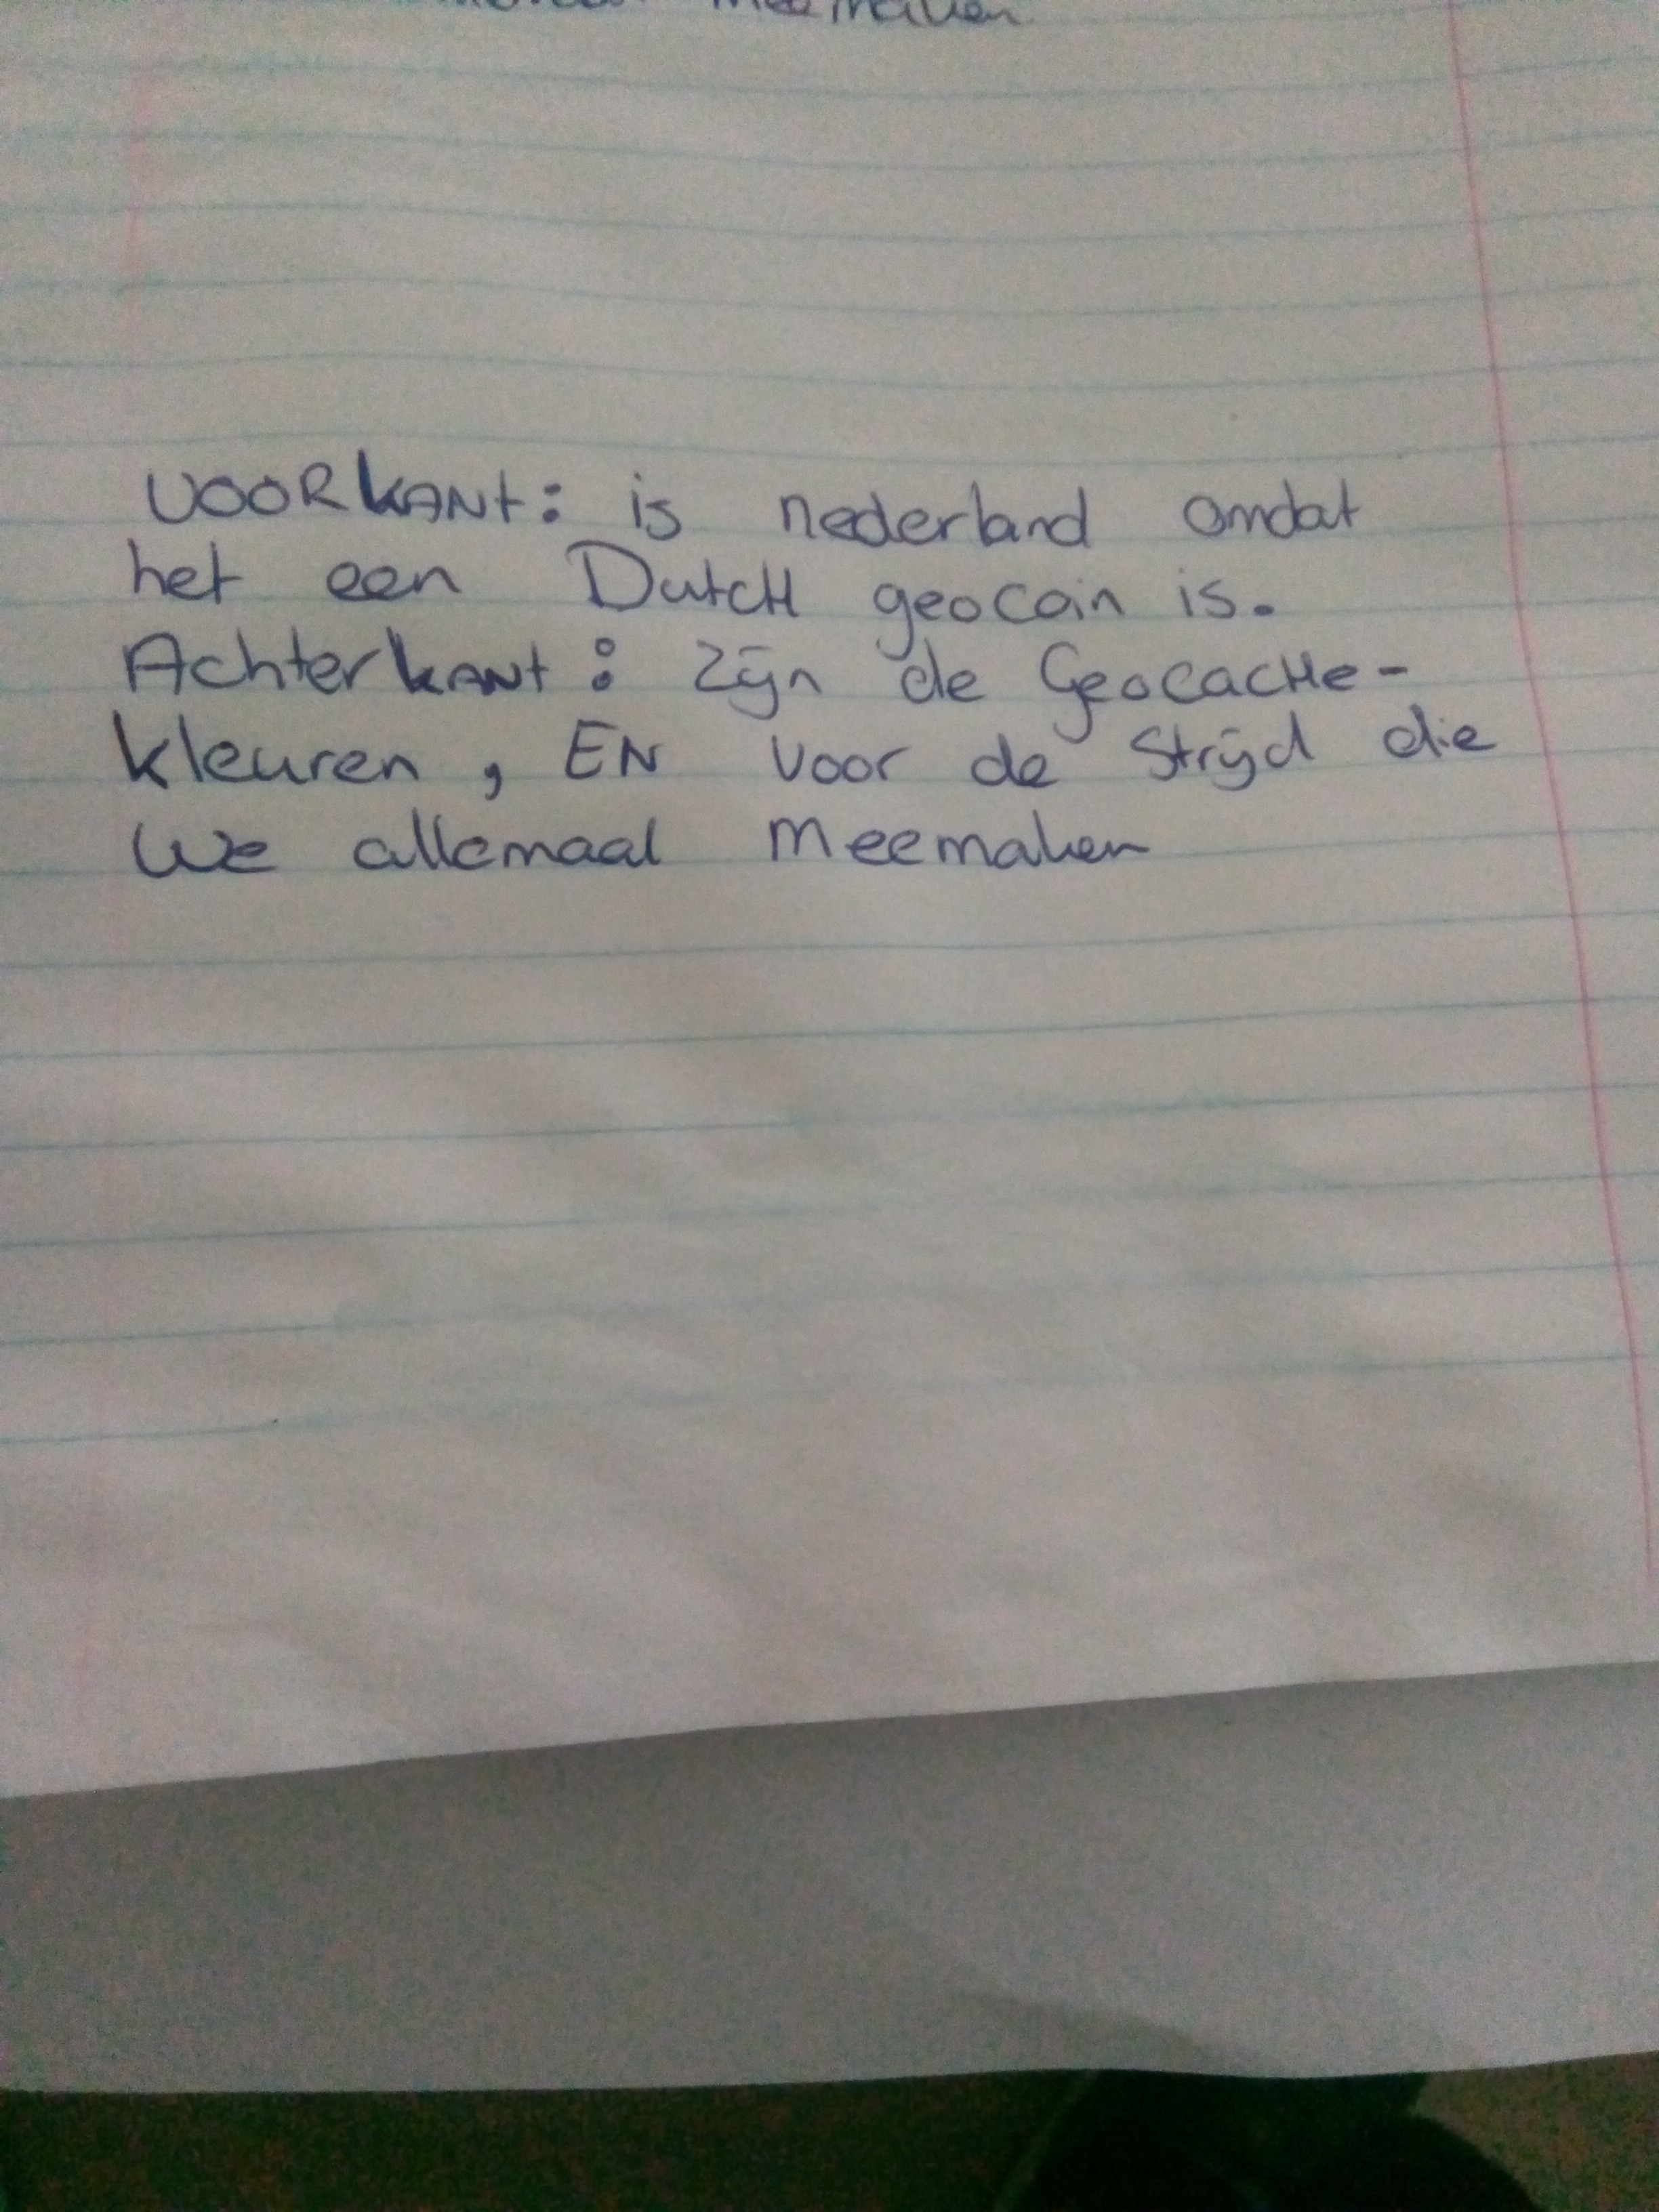 meemaken
VOORKANT: is nederland omdat
het een DutcH geocoin is.
AchterkANT: zijn de GeocacHe-
kleuren, EN voor de Strijd die
We allemaal Meemaken